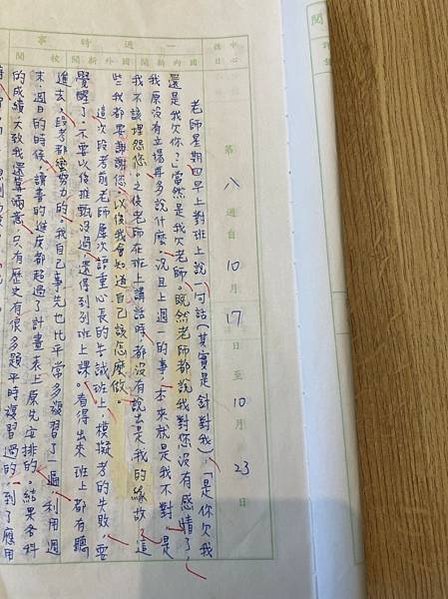 第八週自10月17日至10月23日
老師星期四早上對班上說一句話(其實是針對我),「是你欠我
還是我欠你?」當然是我欠老師。既然老師都說我對您沒有感情了,
我原沒有立場再多說什麼,況且上週一的事,本來就是我不對,是
我不該埋怨您。之後老師在班上講話時都沒有說去是我的緣故,這
些我都要謝謝您,以後我會知道自己該怎麼做。
這次段考前老師屢次語重心長的告誡班上,模擬考的失敗,要
覺醒了,不要以後推甄沒過,還得到別班上課。看得出來班上都有聽
進去,段考都蠻努力的。我自己事先也比平常多複習了一遍,利用週
末、週日的時候,讀書的進度都超過了計畫表上原先安排的。結果各科
的成績大致我還算滿意,只有歷史有很多題平時複習過的,到了應用